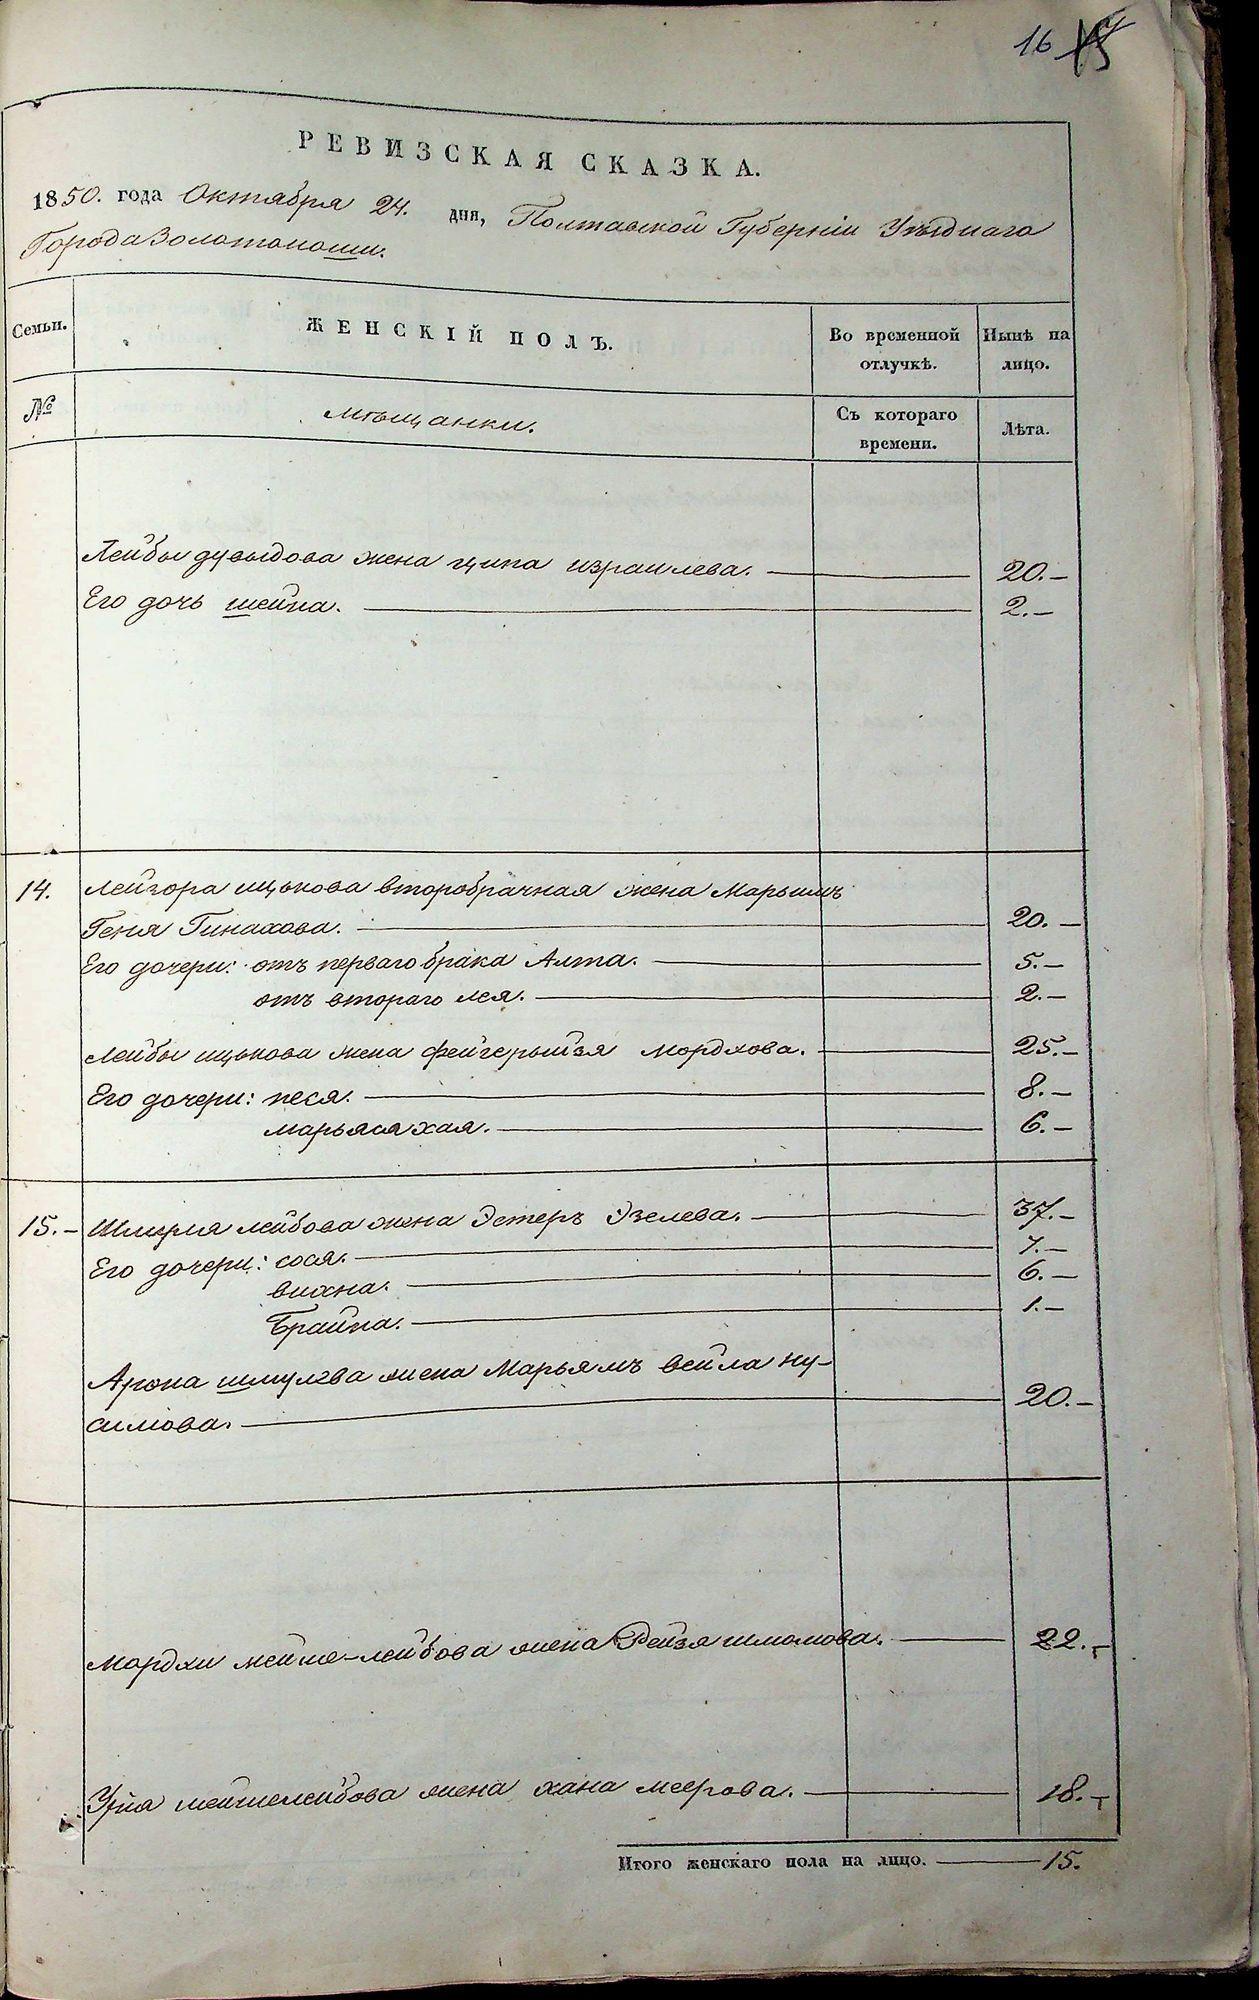 16
РЕВИЗСКАЯ СКАЗКА.
1850. года Октября 24. дня, Полтавской Губерніи Уѣзднаго
Города Золотоноши.
Семьи. ЖЕНСКІЙ ПОЛЪ. Во временной отлучкѣ. Нынѣ на лицо.
№ мѣщанки. Съ котораго времени. Лѣта.
Лейбы дувыдова жена ципа израилева. 20.
Его дочь шейна. 2.
14. Лейзора ицькова второбрачная жена Марьимъ
Геня Гинахова. 20.
Его дочери: отъ перваго брака Алта. 5.
отъ втораго лея. 2.
Лейбы ицькова жена фейгерыйзя мордхова. 25.
Его дочери: песя. 8.
марьясяхая. 6.
15. лейбова жена Эстеръ Эзелева. 37.
Его дочери: сося. 7.
вихна. 6.
Брайна. 1.
Арона шмулева жена Марьямъ вейла ну-
симова. 20.
Мордхи мейше-лейбова жена Рейзя шмомова. 22.
Урія мейшелейбова жена хана меерова. 18.
Итого женскаго пола на лицо. 15.